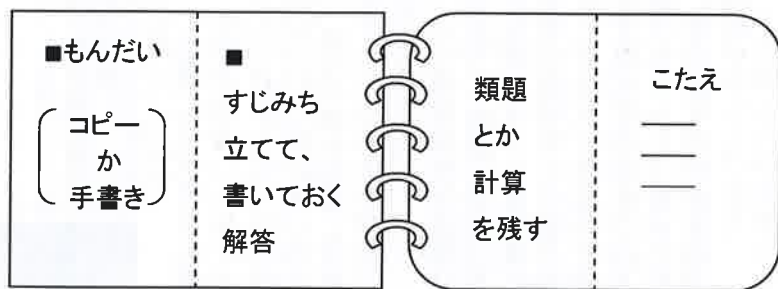 ■もんだい
コピー
か
手書き
■
すじみち
立てて、
書いておく
解答
類題
とか
計算
を残す
こたえ